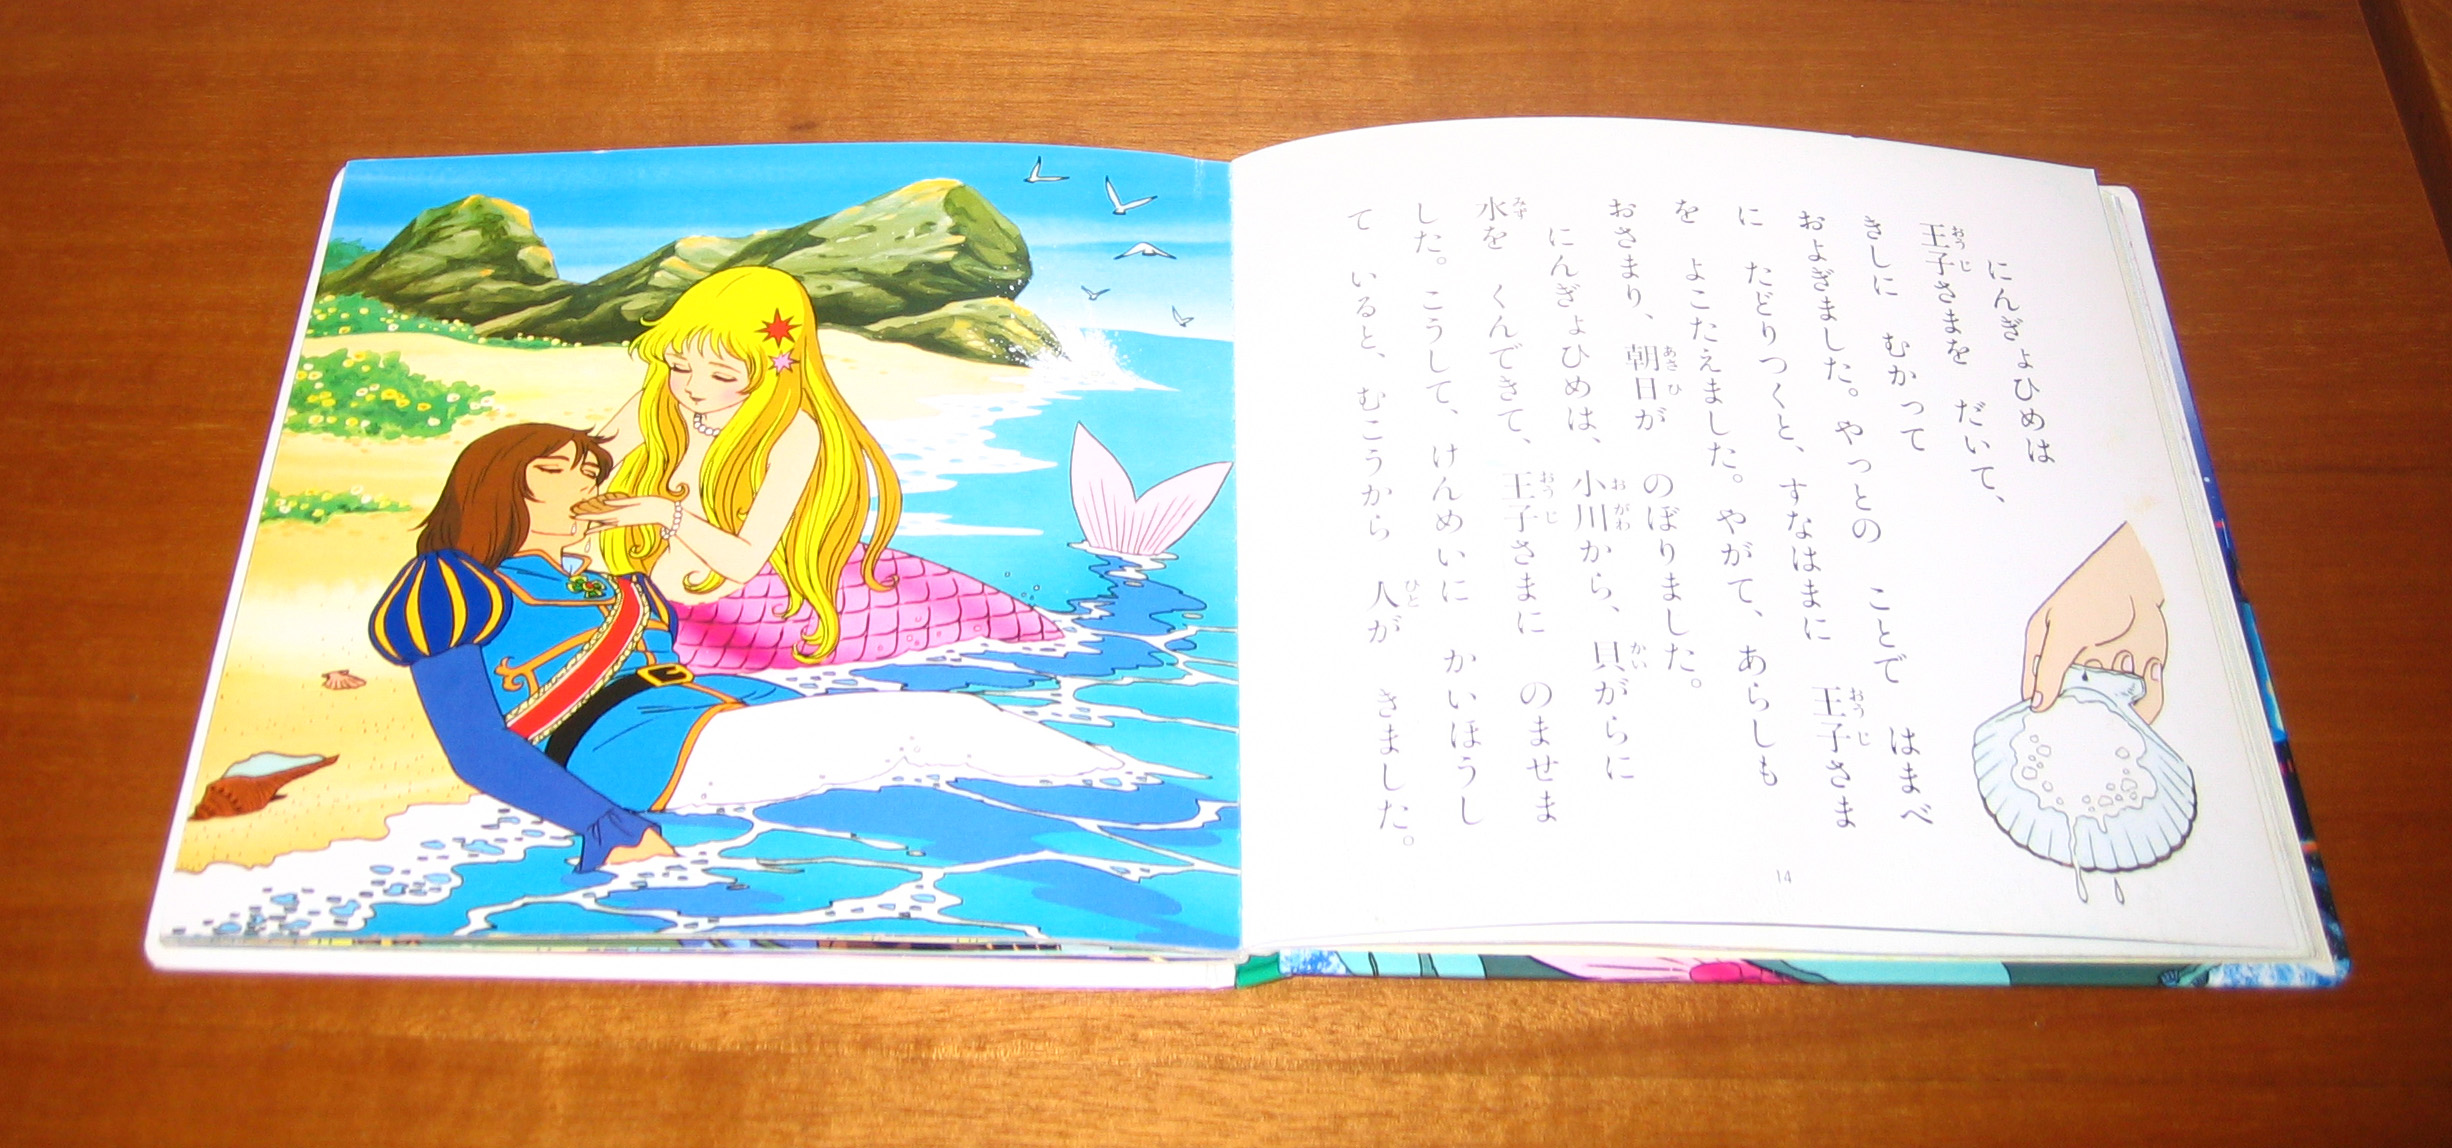 にんぎょひめは
王子さまを だいて、
きしに むかって
およぎました。やっとの ことで はまべ
に たどりつくと、すなはまに 王子さま
を よこたえました。やがて、あらしも
おさまり、朝日が のぼりました。
にんぎょひめは、小川から、貝がらに
水を くんできて、王子さまに のませま
した。こうして、けんめいに かいほうし
て いると、むこうから 人が きました。
14